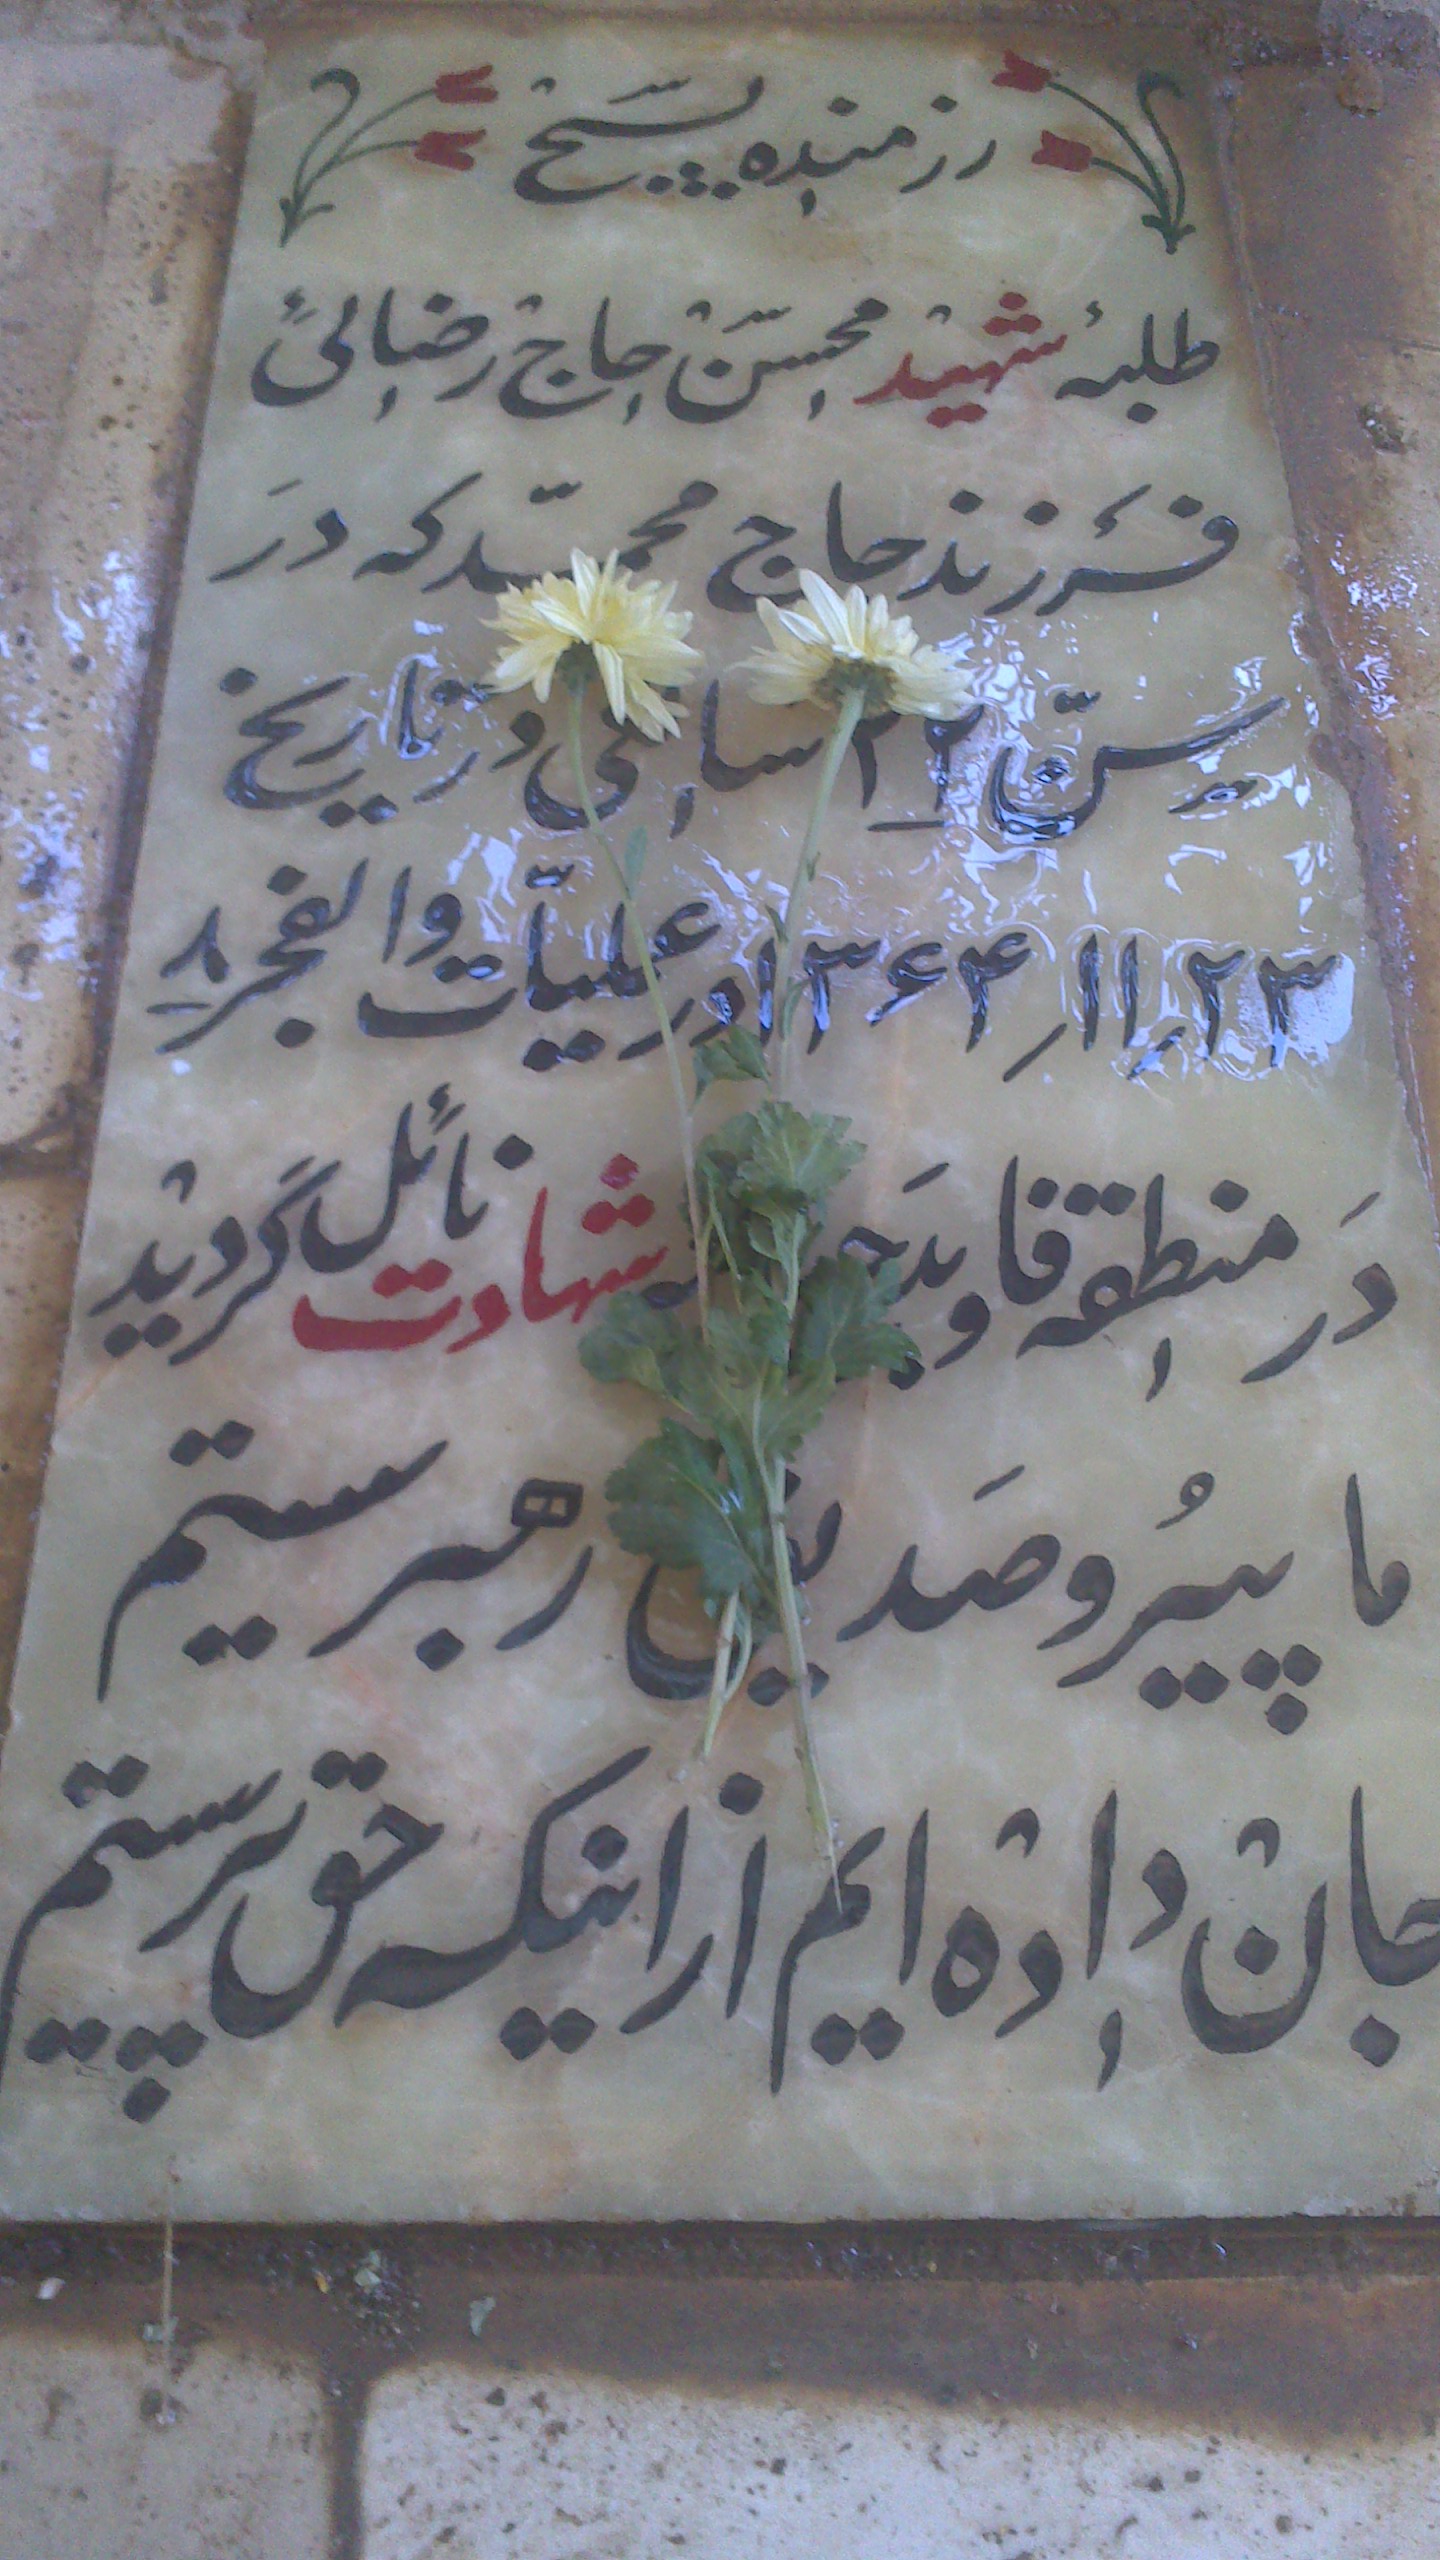 رزمنده بسیج
طلبهٔ شهید محسن حاج رضائی
فرزند حاج محمّد که در
سنّ سالگی در تاریخ
۲۳/۱۱/۱۳۶۴ در عملیّات والفجر ۸
در منطقه فاو بدرجه شهادت نائل گردید
ما پیرو صدیق رهبر ستیم
جان داده ایم از اینکه حق پرستیم